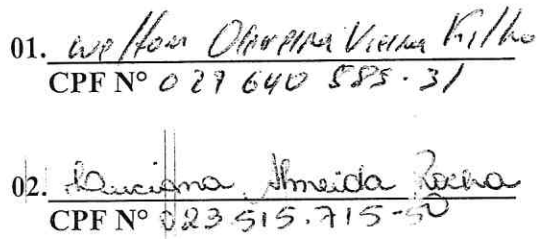 01. Welton Oliveira Vieira Filho
CPF N° 027 640 585 - 31
02. Luciana Almeida Rocha
CPF N° 023.515.715-50